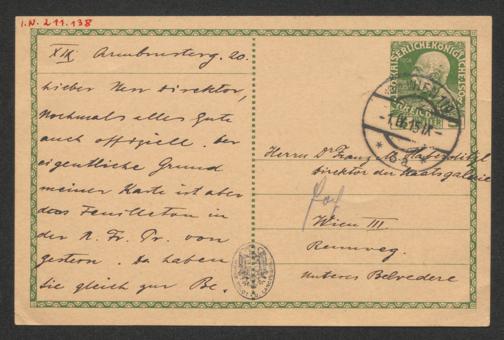 I.N. 211.138
XIX Armbrusterg. 20.
Lieber Herr Direktor,
Nochmals alles Gute
auch offiziell. Der
eigentliche Grund
meiner Karte ist aber
das Feuilleton in
der N. Fr. Pr. von
gestern. Da haben
Sie gleich zur Be.
Herrn Dr Franz
Direktor der Staatsgalerie
Wien III.
Rennweg.
Unteres Belvedere
WIEN